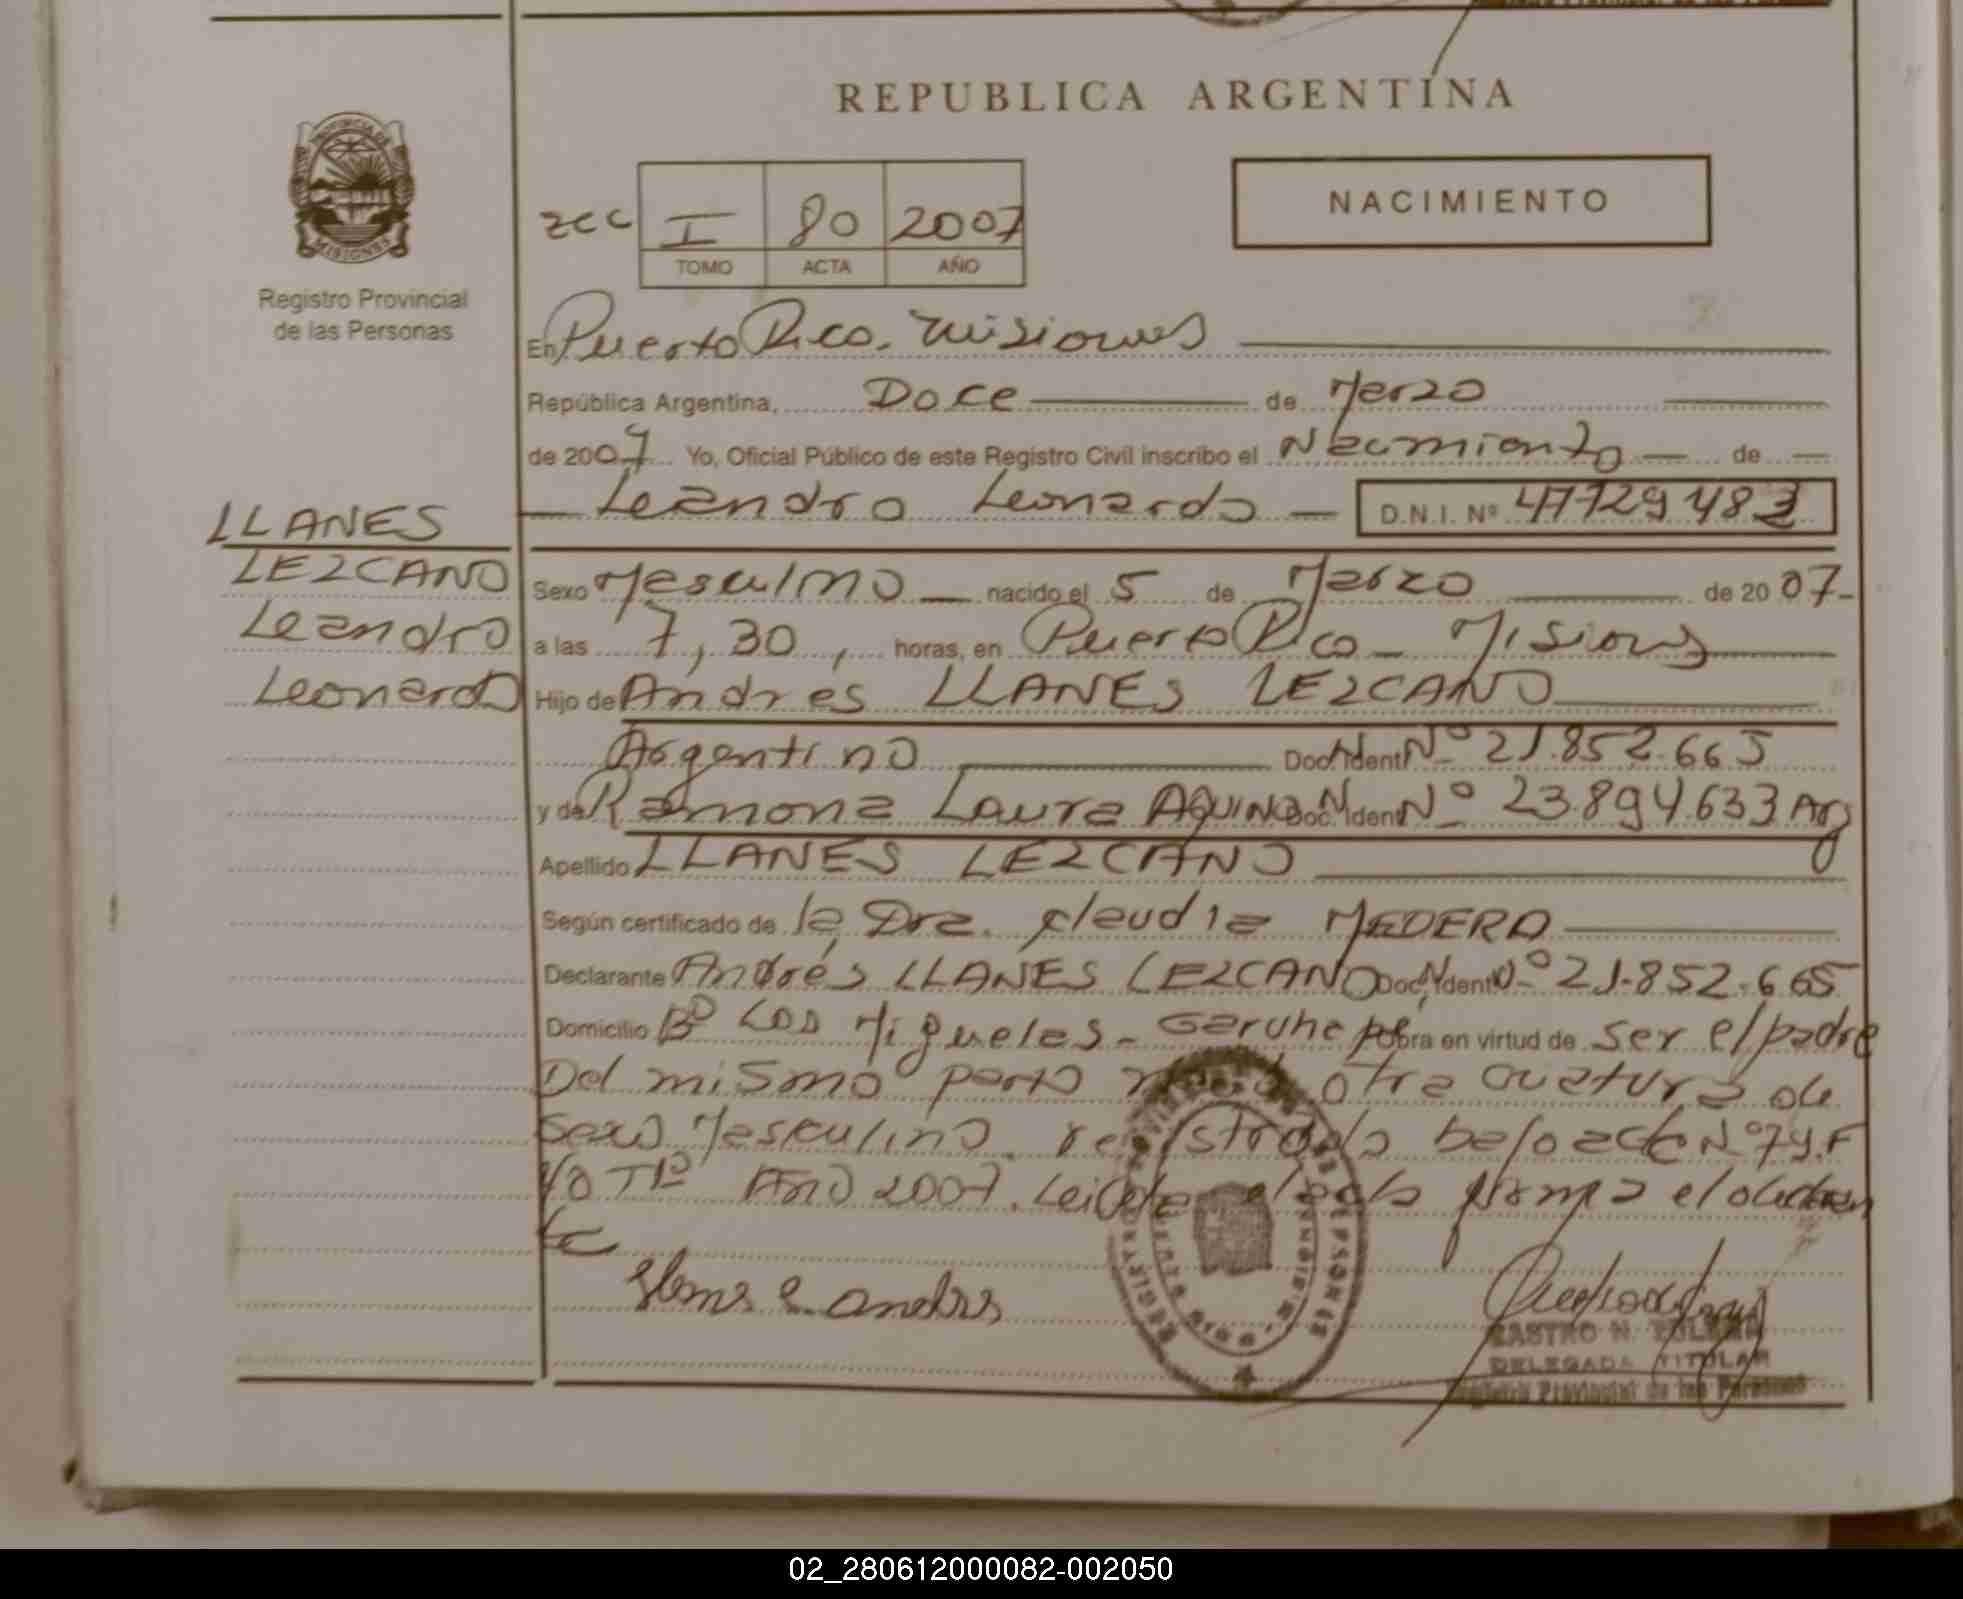 REPUBLICA ARGENTINA
PROVINCIA DE
MISIONES
Registro Provincial
de las Personas
NACIMIENTO
I 80 2007
TOMO ACTA AÑO
En Puerto Rico. Misiones
República Argentina, Doce de Marzo
de 2007 Yo, Oficial Público de este Registro Civil inscribo el Nacimiento de
Leandro Leonardo D.N.I. Nº
LLANES
LEZCANO
Leandro
Leonardo
Sexo Masculino nacido el 5 de Marzo de 2007-
a las 7,30, horas, en Puerto Rico - Misiones
Hijo de Andrés LLANES LEZCANO
Argentino Doc. Ident. Nº 21.852.665
y de Ramona Laura AQUINO Doc. Ident. Nº 23.894.633 Arg
Apellido LLANES LEZCANO
Según certificado de la Dra. Claudia MEDERO
Declarante Andrés LLANES LEZCANO Doc. Ident. Nº 21.852.665
Domicilio Bº Los Migueles - Garuhape obra en virtud de ser el padre
Del mismo parto otra creatura de
sexo Masculino. registrado bajo acta Nº 79. F
40 Tº Año 2007. Leida el acta firma el declaran
te
DELEGADA TITULAR
Registro Provincial de las Personas
02_280612000082-002050